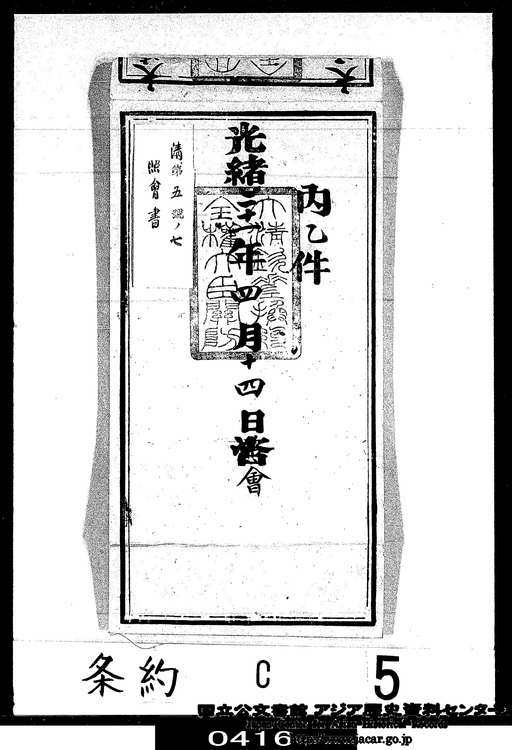 内乙件
光緒二十一年四月十四日照會
大清欽差換約
全權大臣關防
清第五號ノ七
照會書
条約 C 5
国立公文書館 アジア歴史資料センター
Japan Center for Asian Historical Records
http://www.jacar.go.jp
0416